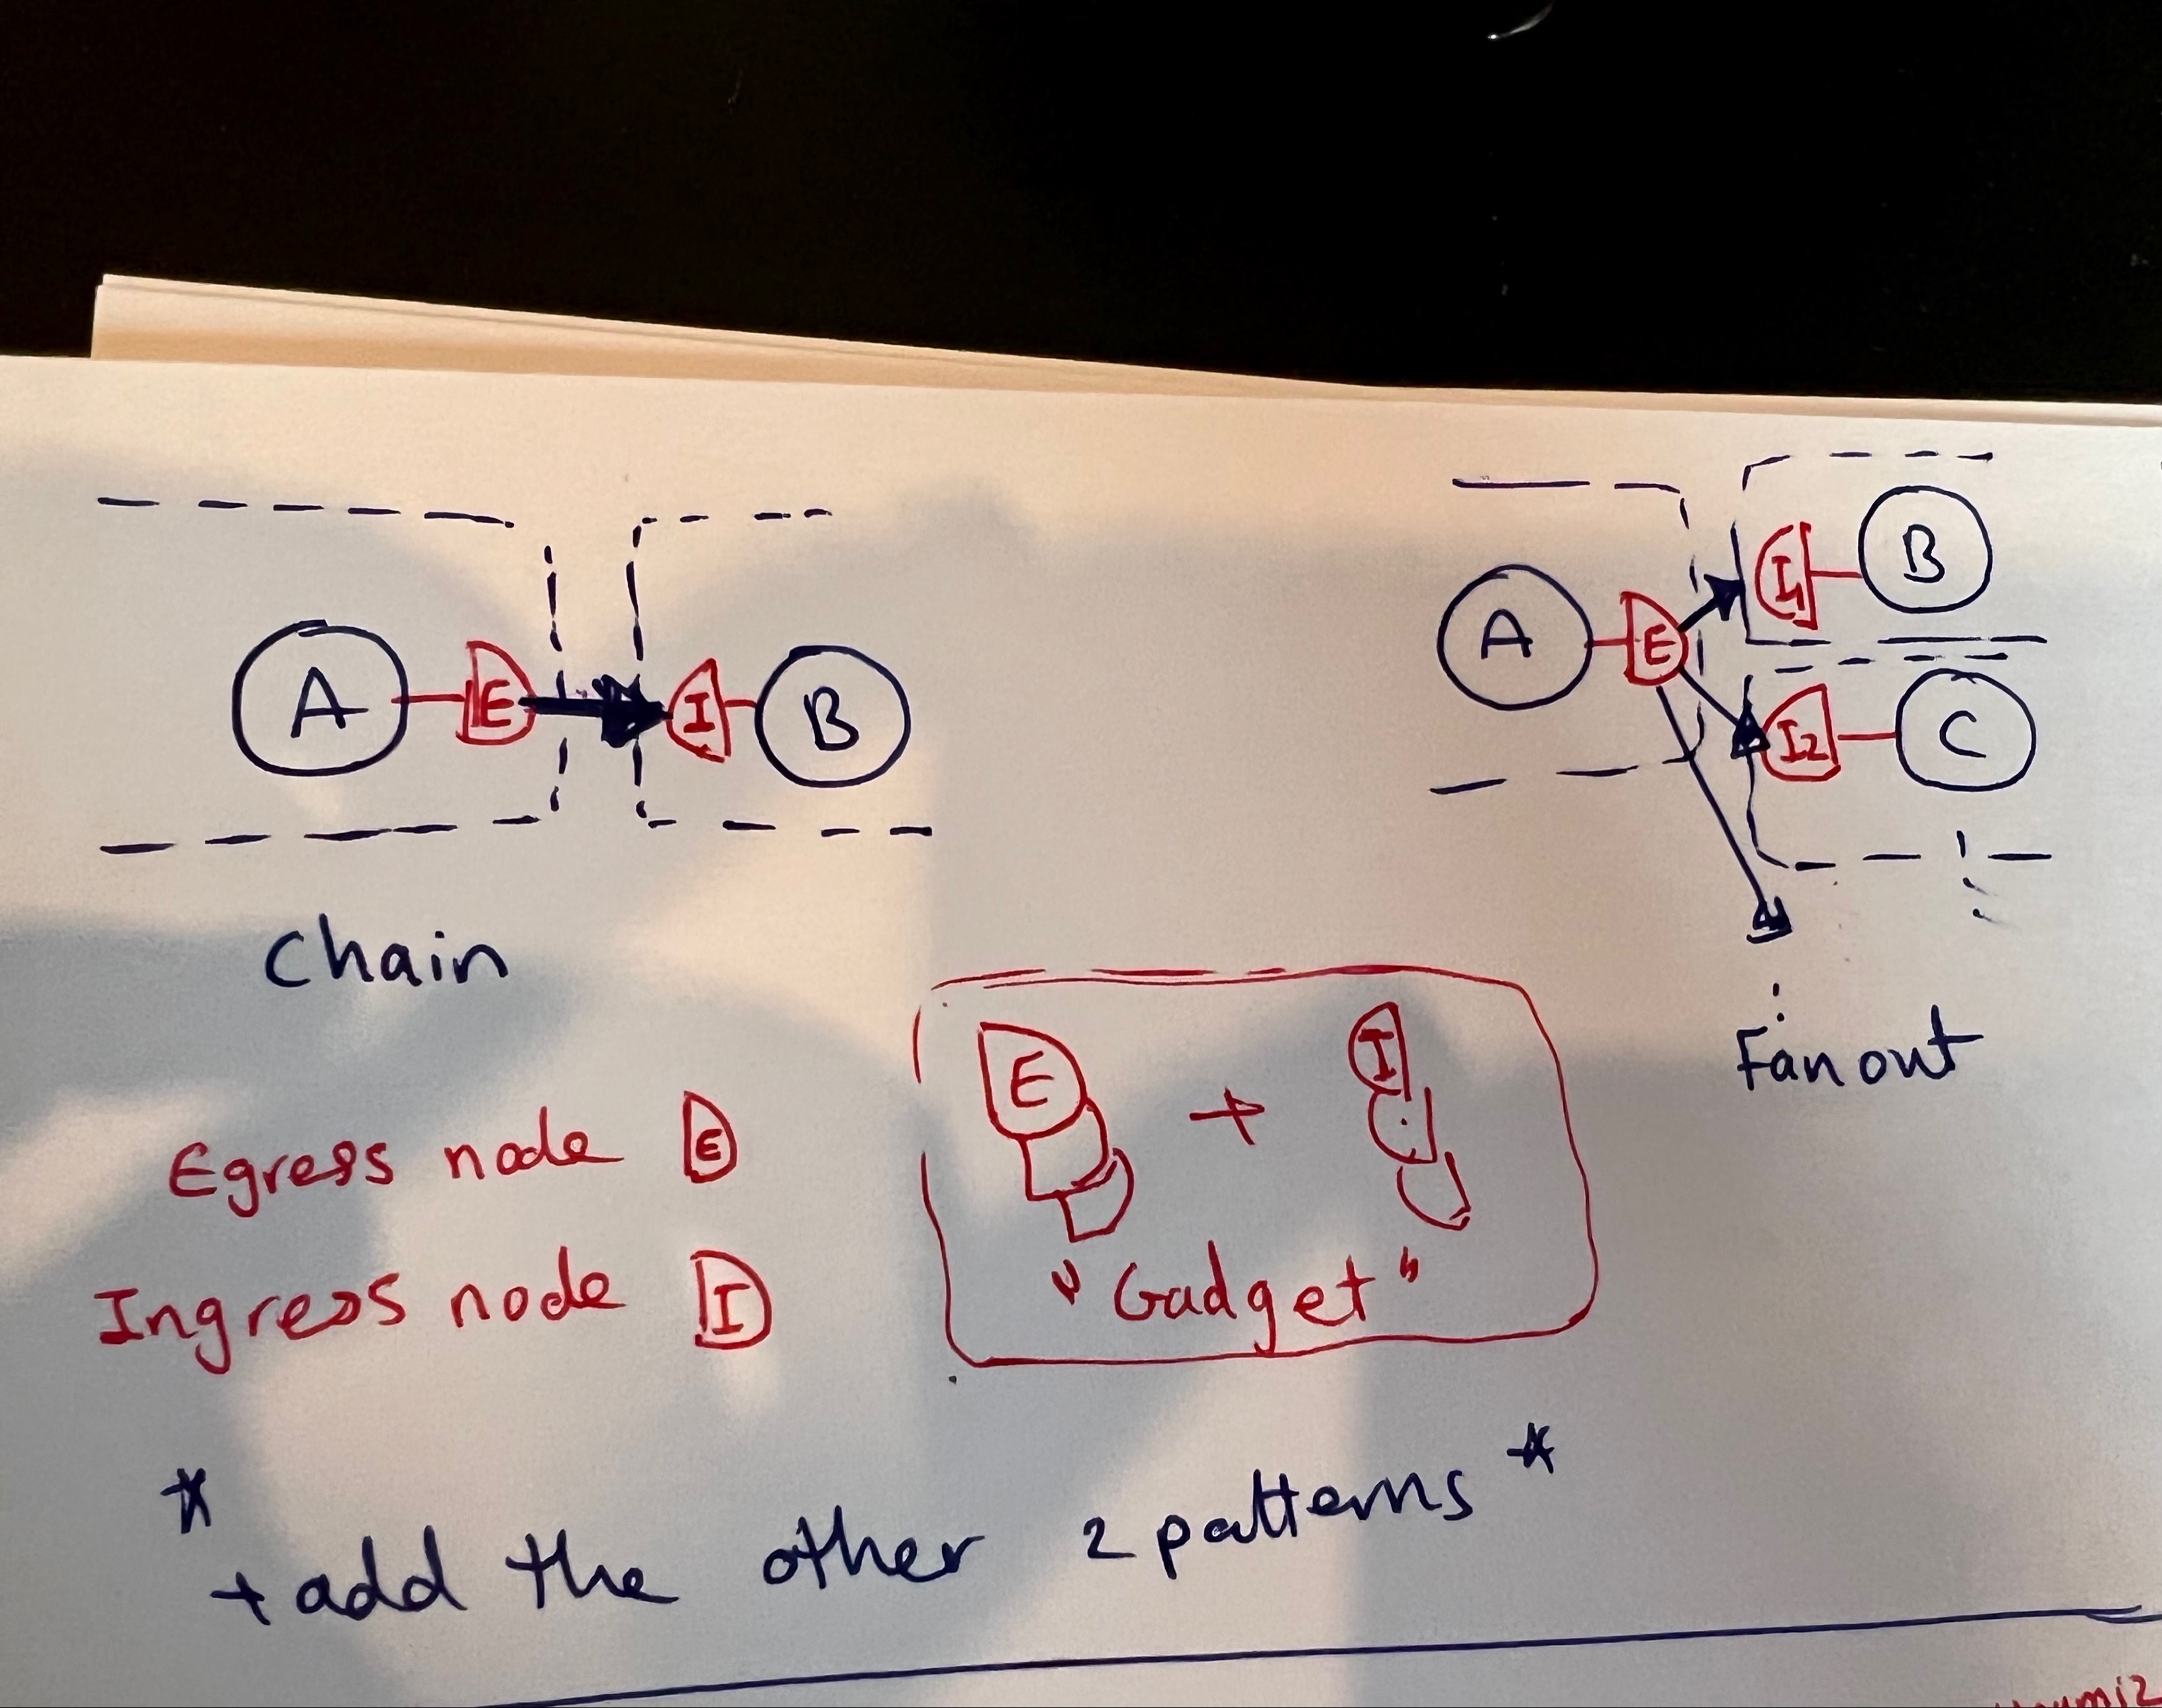 A E I B
Chain
A E I1 B
I2 C
Fanout
Egress node E
Ingress node I
E + I
"Gadget"
* + add the other 2 patterns *